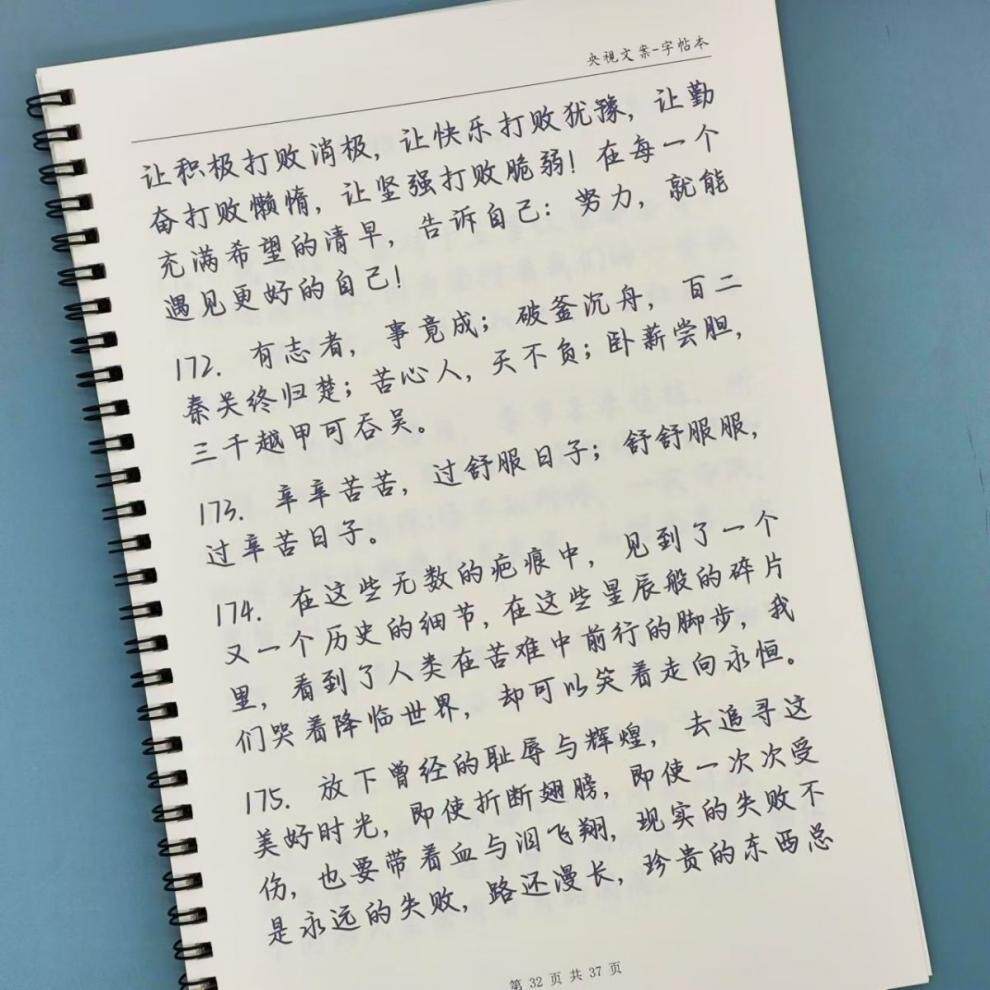 央视文案-字帖本
让积极打败消极，让快乐打败犹豫，让勤
奋打败懒惰，让坚强打败脆弱！在每一个
充满希望的清早，告诉自己：努力，就能
遇见更好的自己！
172. 有志者，事竟成；破釜沉舟，百二
秦关终归楚；苦心人，天不负；卧薪尝胆，
三千越甲可吞吴。
173. 辛辛苦苦，过舒服日子；舒舒服服，
过辛苦日子。
174. 在这些无数的疤痕中，见到了一个
又一个历史的细节，在这些星辰般的碎片
里，看到了人类在苦难中前行的脚步，我
们哭着降临世界，却可以笑着走向永恒。
175. 放下曾经的耻辱与辉煌，去追寻这
美好时光，即使折断翅膀，即使一次次受
伤，也要带着血与泪飞翔，现实的失败不
是永远的失败，路还漫长，珍贵的东西总
第 32 页 共 37 页